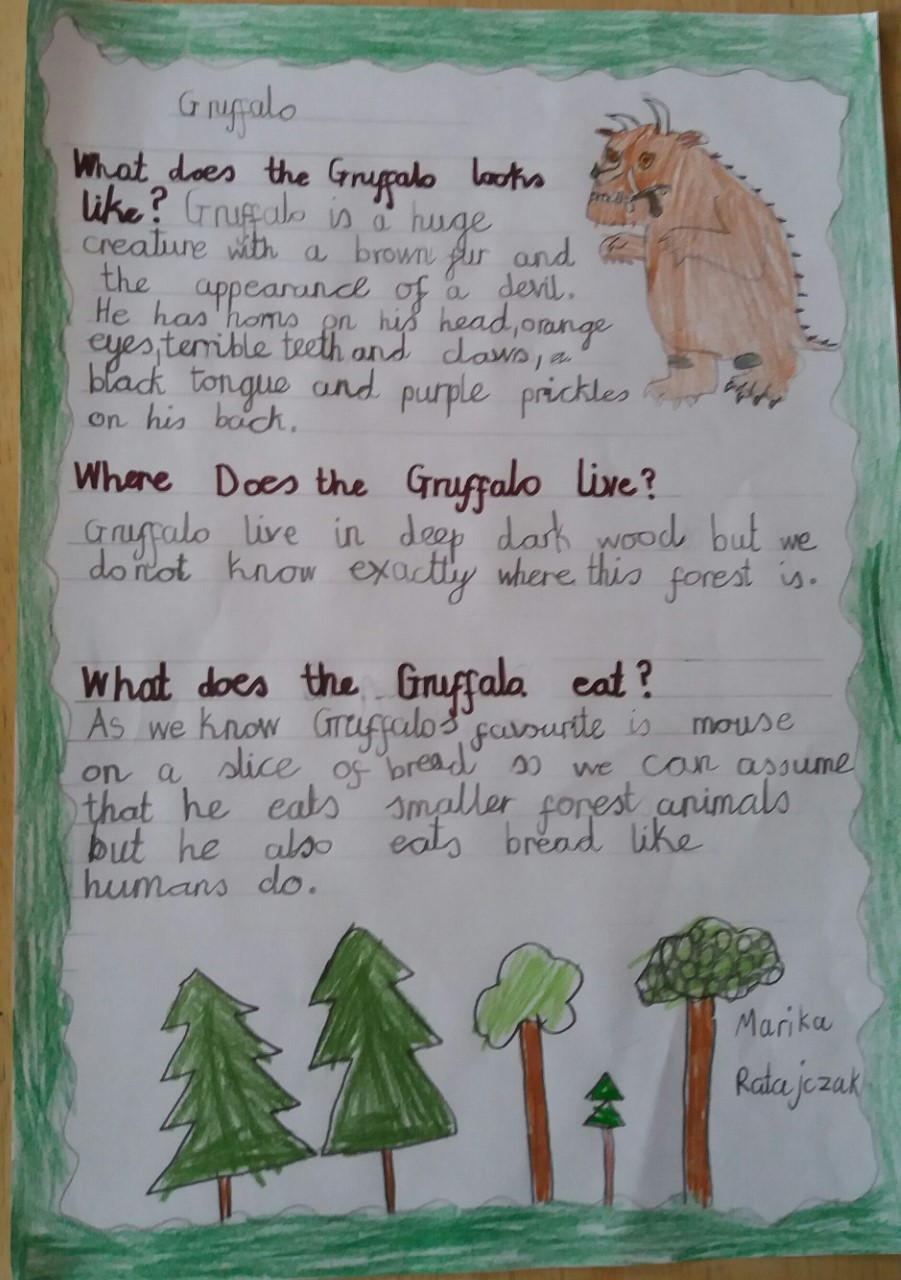 Gruffalo
What does the Gruffalo looks
like? Gruffalo is a huge
creature with a brown fur and
the appearance of a devil.
He has horns on his head, orange
eyes, terrible teeth and claws, a
black tongue and purple prickles
on his back.
Where Does the Gruffalo live?
Gruffalo live in deep dark wood but we
do not know exactly where this forest is.
What does the Gruffalo eat?
As we know Gruffalo's favourite is mouse
on a slice of bread so we can assume
that he eats smaller forest animals
but he also eats bread like
humans do.
Marika
Ratajczak